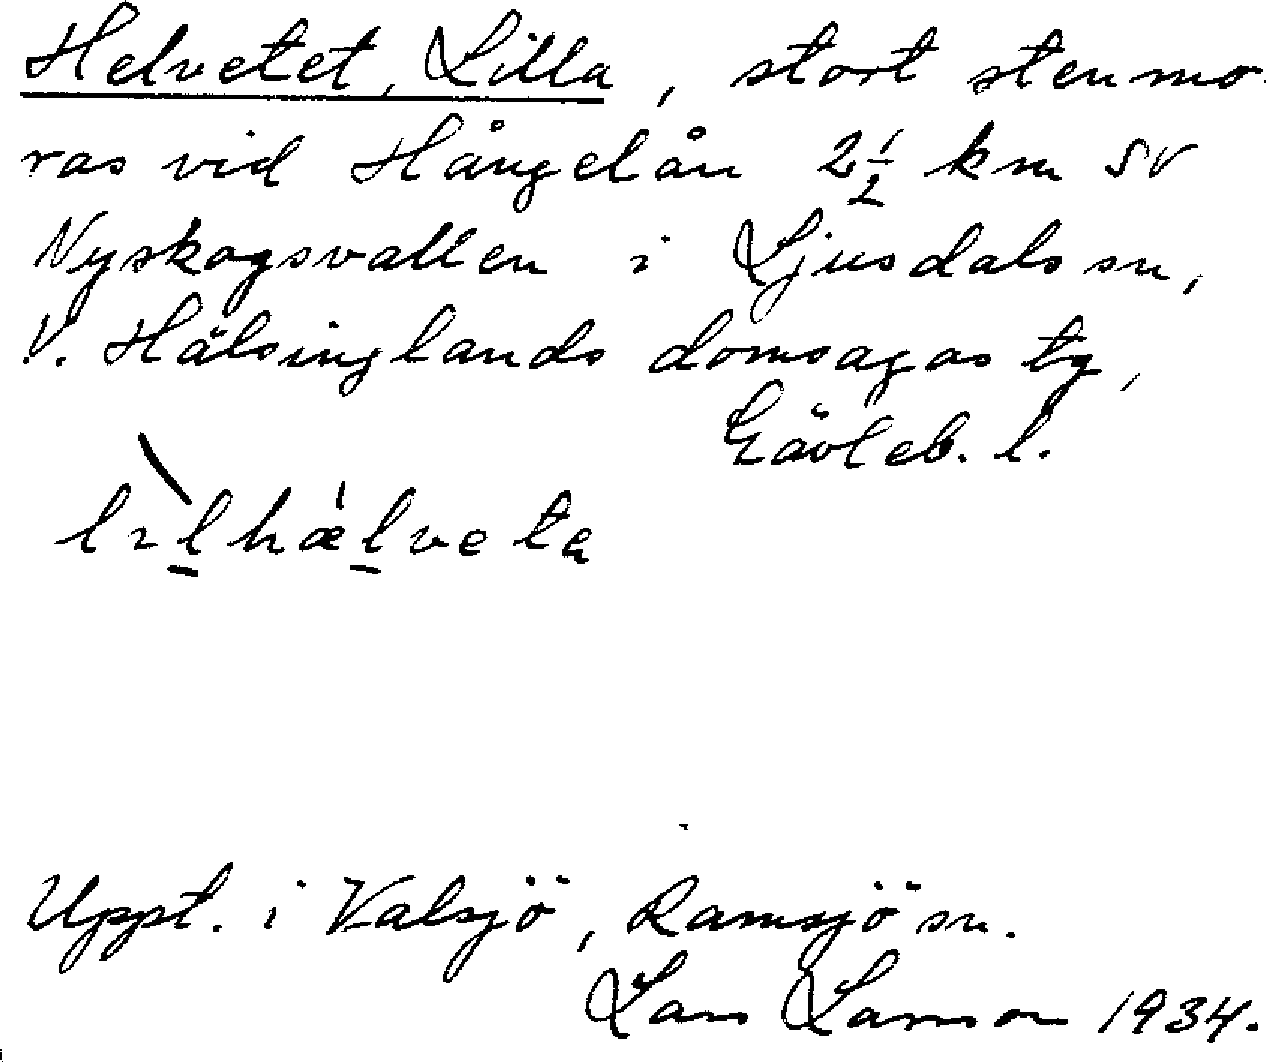 Helvetet, Lilla, stort stenmo-
ras vid Hångelån 2½ km SV
Nyskogsvallen i Ljusdals sn,
V. Hälsinglands domsagas tg,
Gävleb. l.
lılhælveta
Uppt. i Valsjö, Ramsjö sn.
Lars Larsson 1934.